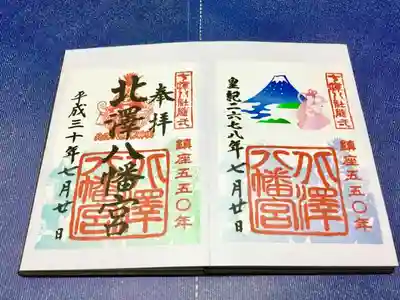 奉拝
北澤八幡宮
平成三十年七月廿日
鎮座五五〇年
北澤
八幡宮
皇紀二六七八年七月廿日
鎮座五五〇年
北澤
八幡宮